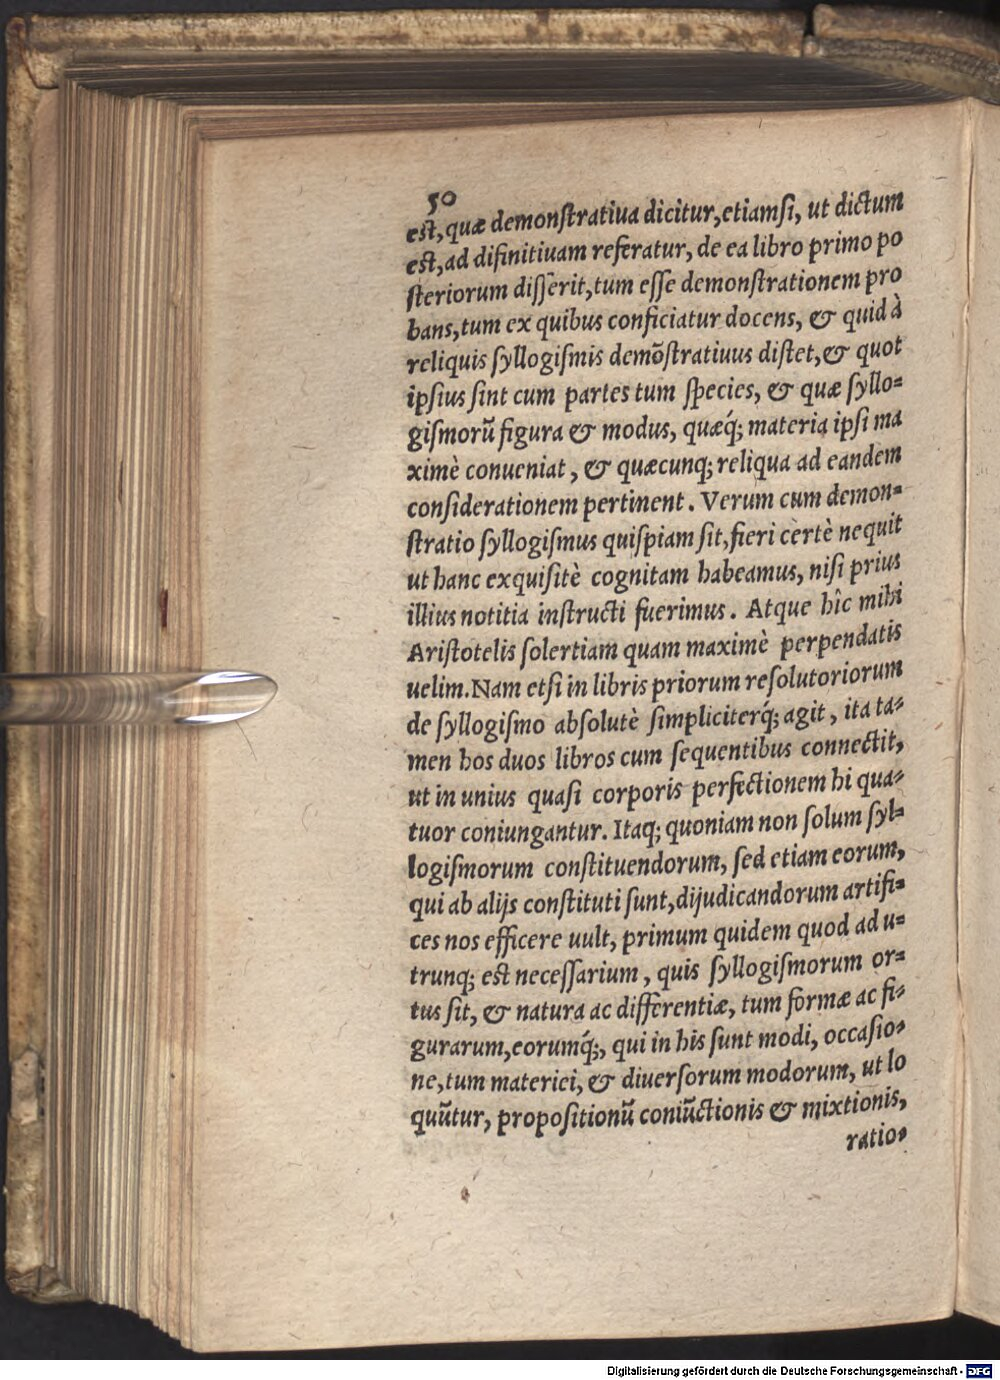 50
est, quæ demonſtratiua dicitur, etiamſi, ut dictum
est, ad difinitiuam referatur, de ea libro primo po
ſteriorum diſſerit, tum eſſe demonſtrationem pro
bans, tum ex quibus conficiatur docens, & quid à
reliquis ſyllogiſmis demōſtratiuus diſtet, & quot
ipſius ſint cum partes tum ſpecies, & quæ ſyllo=
giſmorũ figura & modus, quæq́; materia ipſi ma
ximè conueniat, & quæcunq; reliqua ad eandem
conſiderationem pertinent. Verum cum demon=
ſtratio ſyllogiſmus quiſpiam ſit, fieri certè nequit
ut hanc exquiſitè cognitam habeamus, niſi prius
illius notitia inſtructi fuerimus. Atque hîc mihi
Ariſtotelis ſolertiam quam maximè perpendatis
uelim. Nam etſi in libris priorum reſolutoriorum
de ſyllogiſmo abſolutè ſimpliciterq́; agit, ita ta=
men hos duos libros cum ſequentibus connectit,
ut in unius quaſi corporis perfectionem hi qua=
tuor coniungantur. Itaq; quoniam non ſolum ſyl=
logiſmorum conſtituendorum, ſed etiam eorum,
qui ab alijs conſtituti ſunt, dijudicandorum artifi=
ces nos efficere uult, primum quidem quod ad u=
trunq; est neceſſarium, quis ſyllogiſmorum or=
tus ſit, & natura ac differentiæ, tum formæ ac fi=
gurarum, eorumq́;, qui in his ſunt modi, occaſio=
ne, tum materiei, & diuerſorum modorum, ut lo
quũtur, propoſitionũ coniũctionis & mixtionis,
ratio=
Digitalisierung gefördert durch die Deutsche Forschungsgemeinschaft - DFG